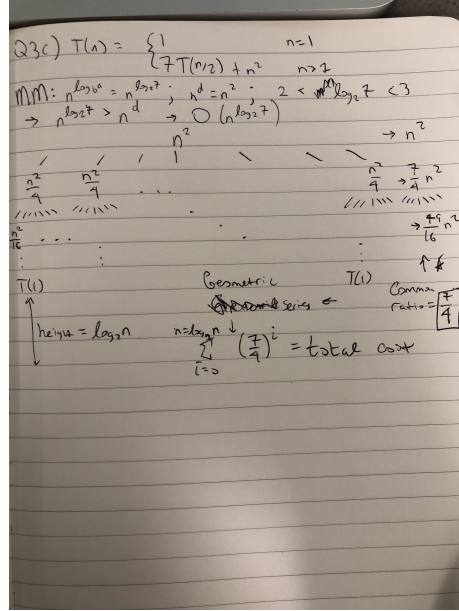 Q3c) T(n) = { 1 n=1
7T(n/2) + n² n>1
MM: n^log_b a = n^log₂7 ; n^d = n² ; 2 < log₂7 < 3
→ n^log₂7 > n^d → O(n^log₂7)
n² → n²
n²/4 n²/4 . . . n²/4 → 7/4 n²
n²/16 . . . → 49/16 n²
T(1) Geometric T(1) Common
series ← ratio = 7/4
height = log₂n n=log₂n ↓
∑ i=0 (7/4)^i = total cost